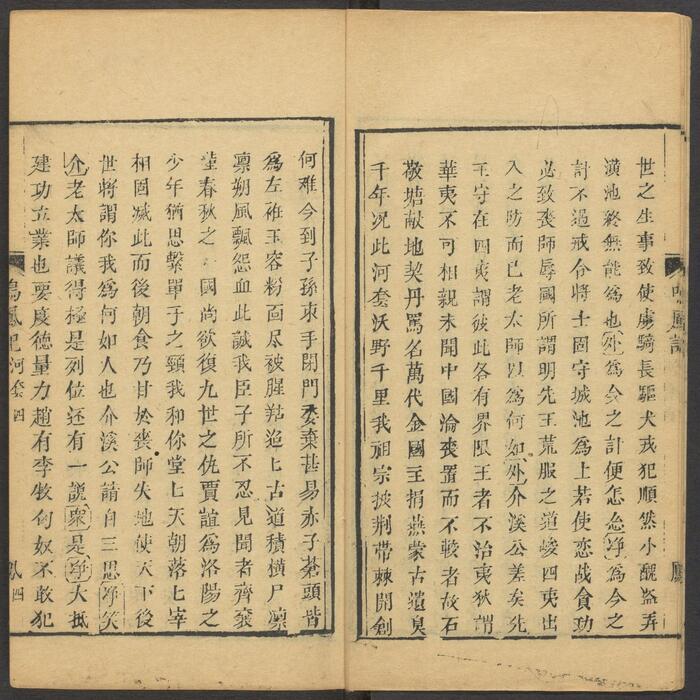 世之生事致使虜騎長驅犬戎犯順然小醜盜弄
潢池終無能為也外為今之計便怎麽凈為今之
計不過戒令將士固守城池為上若使恋战貪功
必致喪師辱國所謂明先王荒服之道峻四夷出
入之防而已老太師以為何如外介溪公差矣先
王守在四夷謂彼此各有界限王者不治夷狄謂
華夷不可相親未聞中國淪喪置而不較者故石
敬塘献地契丹罵名萬代金國主捐燕蒙古遺臭
千年况此河套沃野千里我祖宗披荆帶棘開創
何难今到子孫束手閉門委棄甚易赤子蒼頭皆
為左袵玉容粉面尽被腥羶迨匕古道積橫尸凜
凛朔風飄怨血此誠我臣子所不忍見聞者齊襄
堂春秋之 國尚欲復九世之仇賈誼為洛陽之
少年猶思繫單于之頸我和你堂匕天朝落匕宰
相固减此而後朝食乃甘於喪師失地使天下後
世將謂你我為何如人也介溪公請自三思凈笑
介老太師議得極是列位还有一説衆是凈大抵
建功立業也要度德量力趙有李牧匈奴不敢犯
鳴鳳記 河套 四
鳳 四